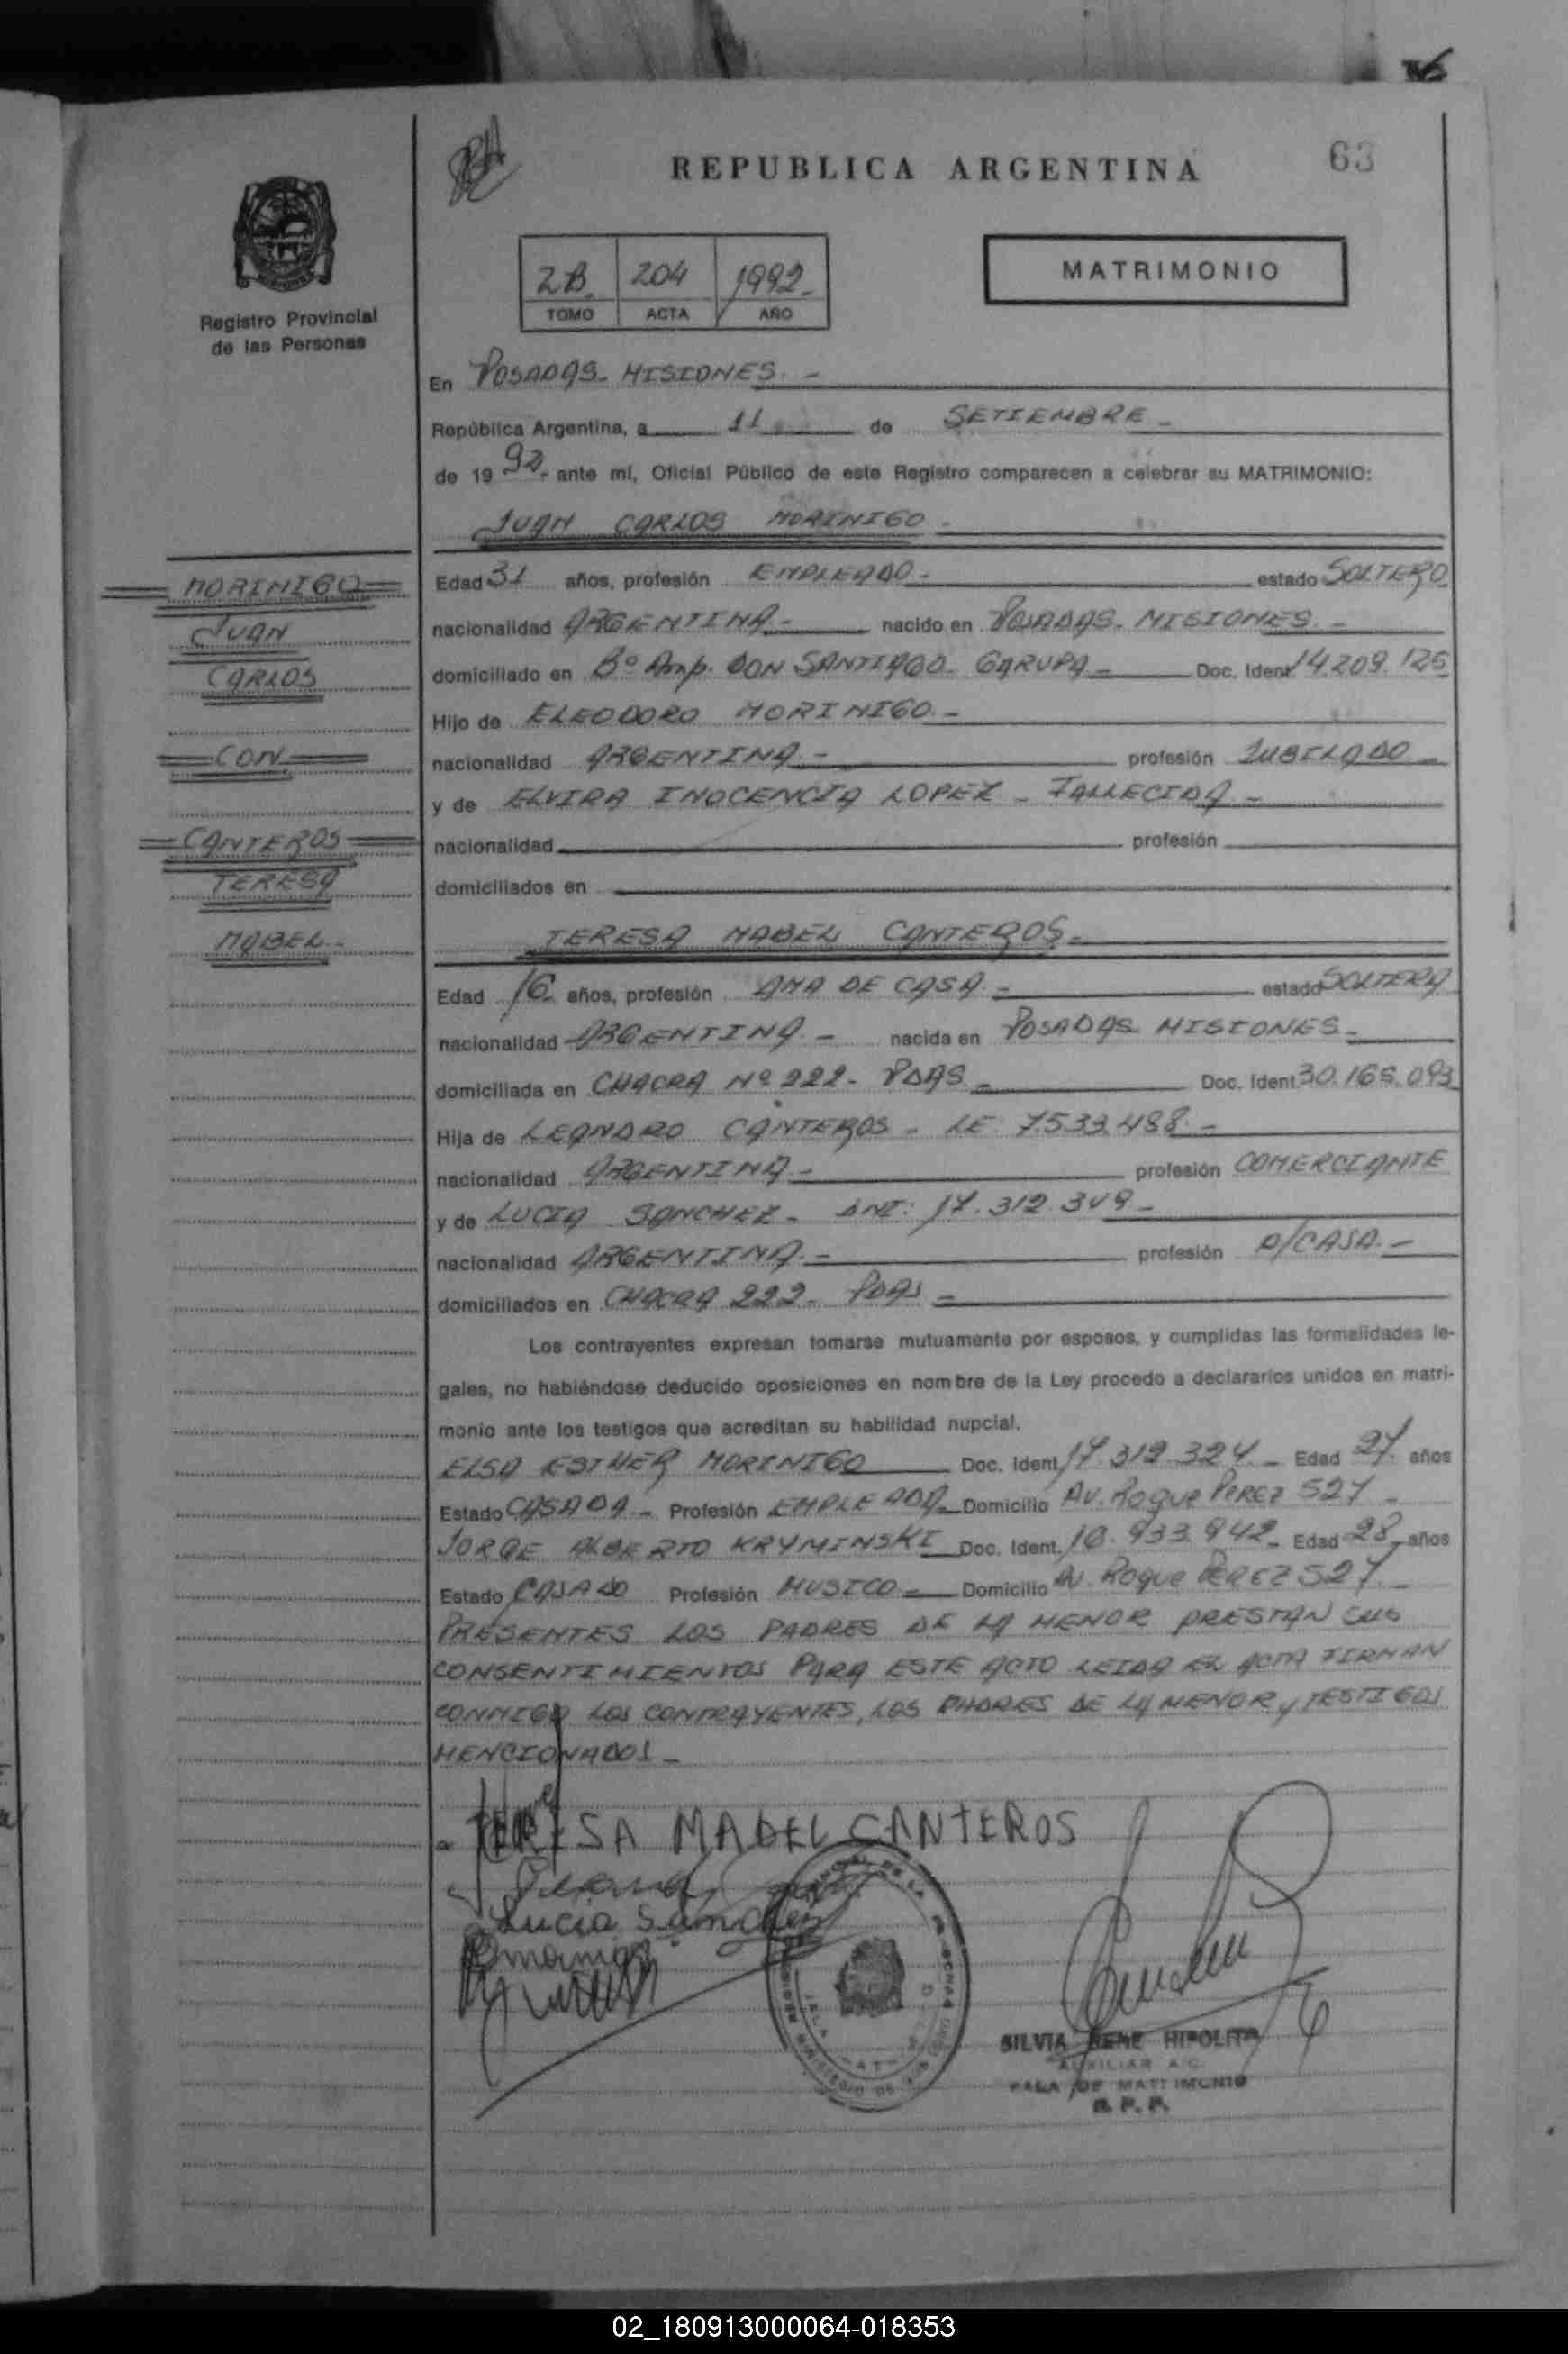 63
REPUBLICA ARGENTINA
Registro Provincial
de las Personas
2B. 204 1992.
TOMO ACTA AÑO
MATRIMONIO
En POSADAS - MISIONES. -
República Argentina, a 11 de SETIEMBRE -
de 19 92.- ante mí, Oficial Público de este Registro comparecen a celebrar su MATRIMONIO:
JUAN CARLOS MORINIGO -
MORINIGO
JUAN
CARLOS
CON
CANTEROS
TERESA
MABEL -
Edad 31 años, profesión EMPLEADO - estado SOLTERO
nacionalidad ARGENTINA - nacido en POSADAS - MISIONES. -
domiciliado en Bº Amp. DON SANTIAGO - GARUPA - Doc. Ident 14.209.126
Hijo de ELEODORO MORINIGO. -
nacionalidad ARGENTINA. - profesión JUBILADO -
y de ELVIRA INOCENCIA LOPEZ - FALLECIDA -
nacionalidad profesión
domiciliados en
TERESA MABEL CANTEROS -
Edad 16 años, profesión AMA DE CASA. - estado SOLTERA
nacionalidad ARGENTINA. - nacida en POSADAS MISIONES -
domiciliada en CHACRA Nº 222 - PDAS - Doc. Ident 30.165.093
Hija de LEANDRO CANTEROS - LE 7.533.488. -
nacionalidad ARGENTINA - profesión COMERCIANTE
y de LUCIA SANCHEZ - DNI: 17.312.349 -
nacionalidad ARGENTINA. - profesión A/CASA. -
domiciliados en CHACRA 222 - PDAS -
Los contrayentes expresan tomarse mutuamente por esposos, y cumplidas las formalidades le-
gales, no habiéndose deducido oposiciones en nombre de la Ley procedo a declararlos unidos en matri-
monio ante los testigos que acreditan su habilidad nupcial.
ELSA ESTHER MORINIGO Doc. Ident. 17.312.324 - Edad 27 años
Estado CASADA - Profesión EMPLEADA - Domicilio AV. Roque PEREZ 527 -
JORGE ALBERTO KRYMINSKI Doc. Ident. 16.933.942 - Edad 28 años
Estado CASADO Profesión MUSICO - Domicilio AV. Roque PEREZ 527 -
PRESENTES LOS PADRES DE LA MENOR PRESTAN SUS
CONSENTIMIENTOS PARA ESTE ACTO LEIDA EL ACTA FIRMAN
CONMIGO LOS CONTRAYENTES, LOS PADRES DE LA MENOR y TESTIGOS
MENCIONADOS -
TERESA MABEL CANTEROS
Lucia Sanchez
SILVIA RENE HIPOLITO
AUXILIAR A/C.
SALA DE MATRIMONIO
R. P. P.
02_180913000064-018353